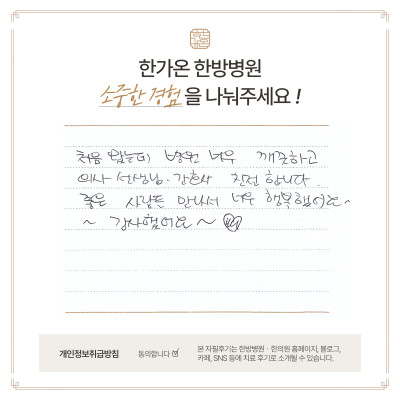 한가온 한방병원
소중한 경험을 나눠주세요!
처음 왔는데 병원 너무 깨끗하고
의사 선생님·간호사 친절합니다.
좋은 사람들 만나서 너무 행복했어요~
~ 감사했어요 ~
개인정보취급방침 동의합니다
본 자필후기는 한방병원·한의원 홈페이지, 블로그,
카페, SNS 등에 치료 후기로 소개될 수 있습니다.